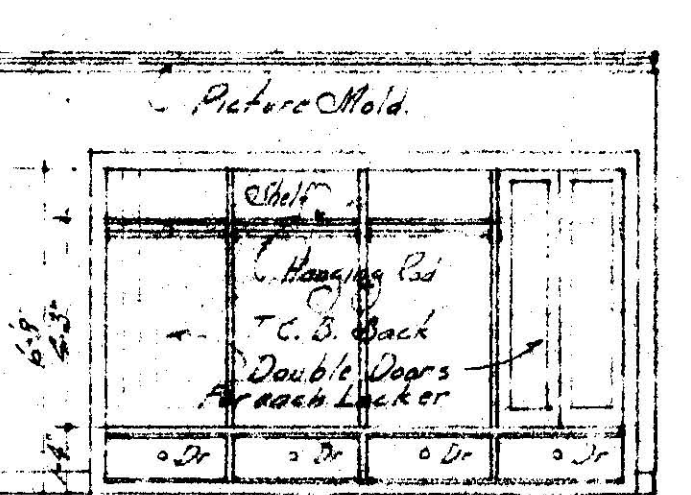 Picture Mold.
Shelf
Hanging Rod
T.C.B. Back
Double Doors
For each Locker
6'-8"
4'-3"
Dr Dr Dr Dr